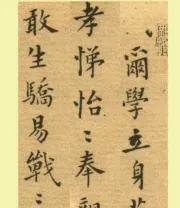 爾學立身
孝悌怡〻奉親
敢生驕易戰〻